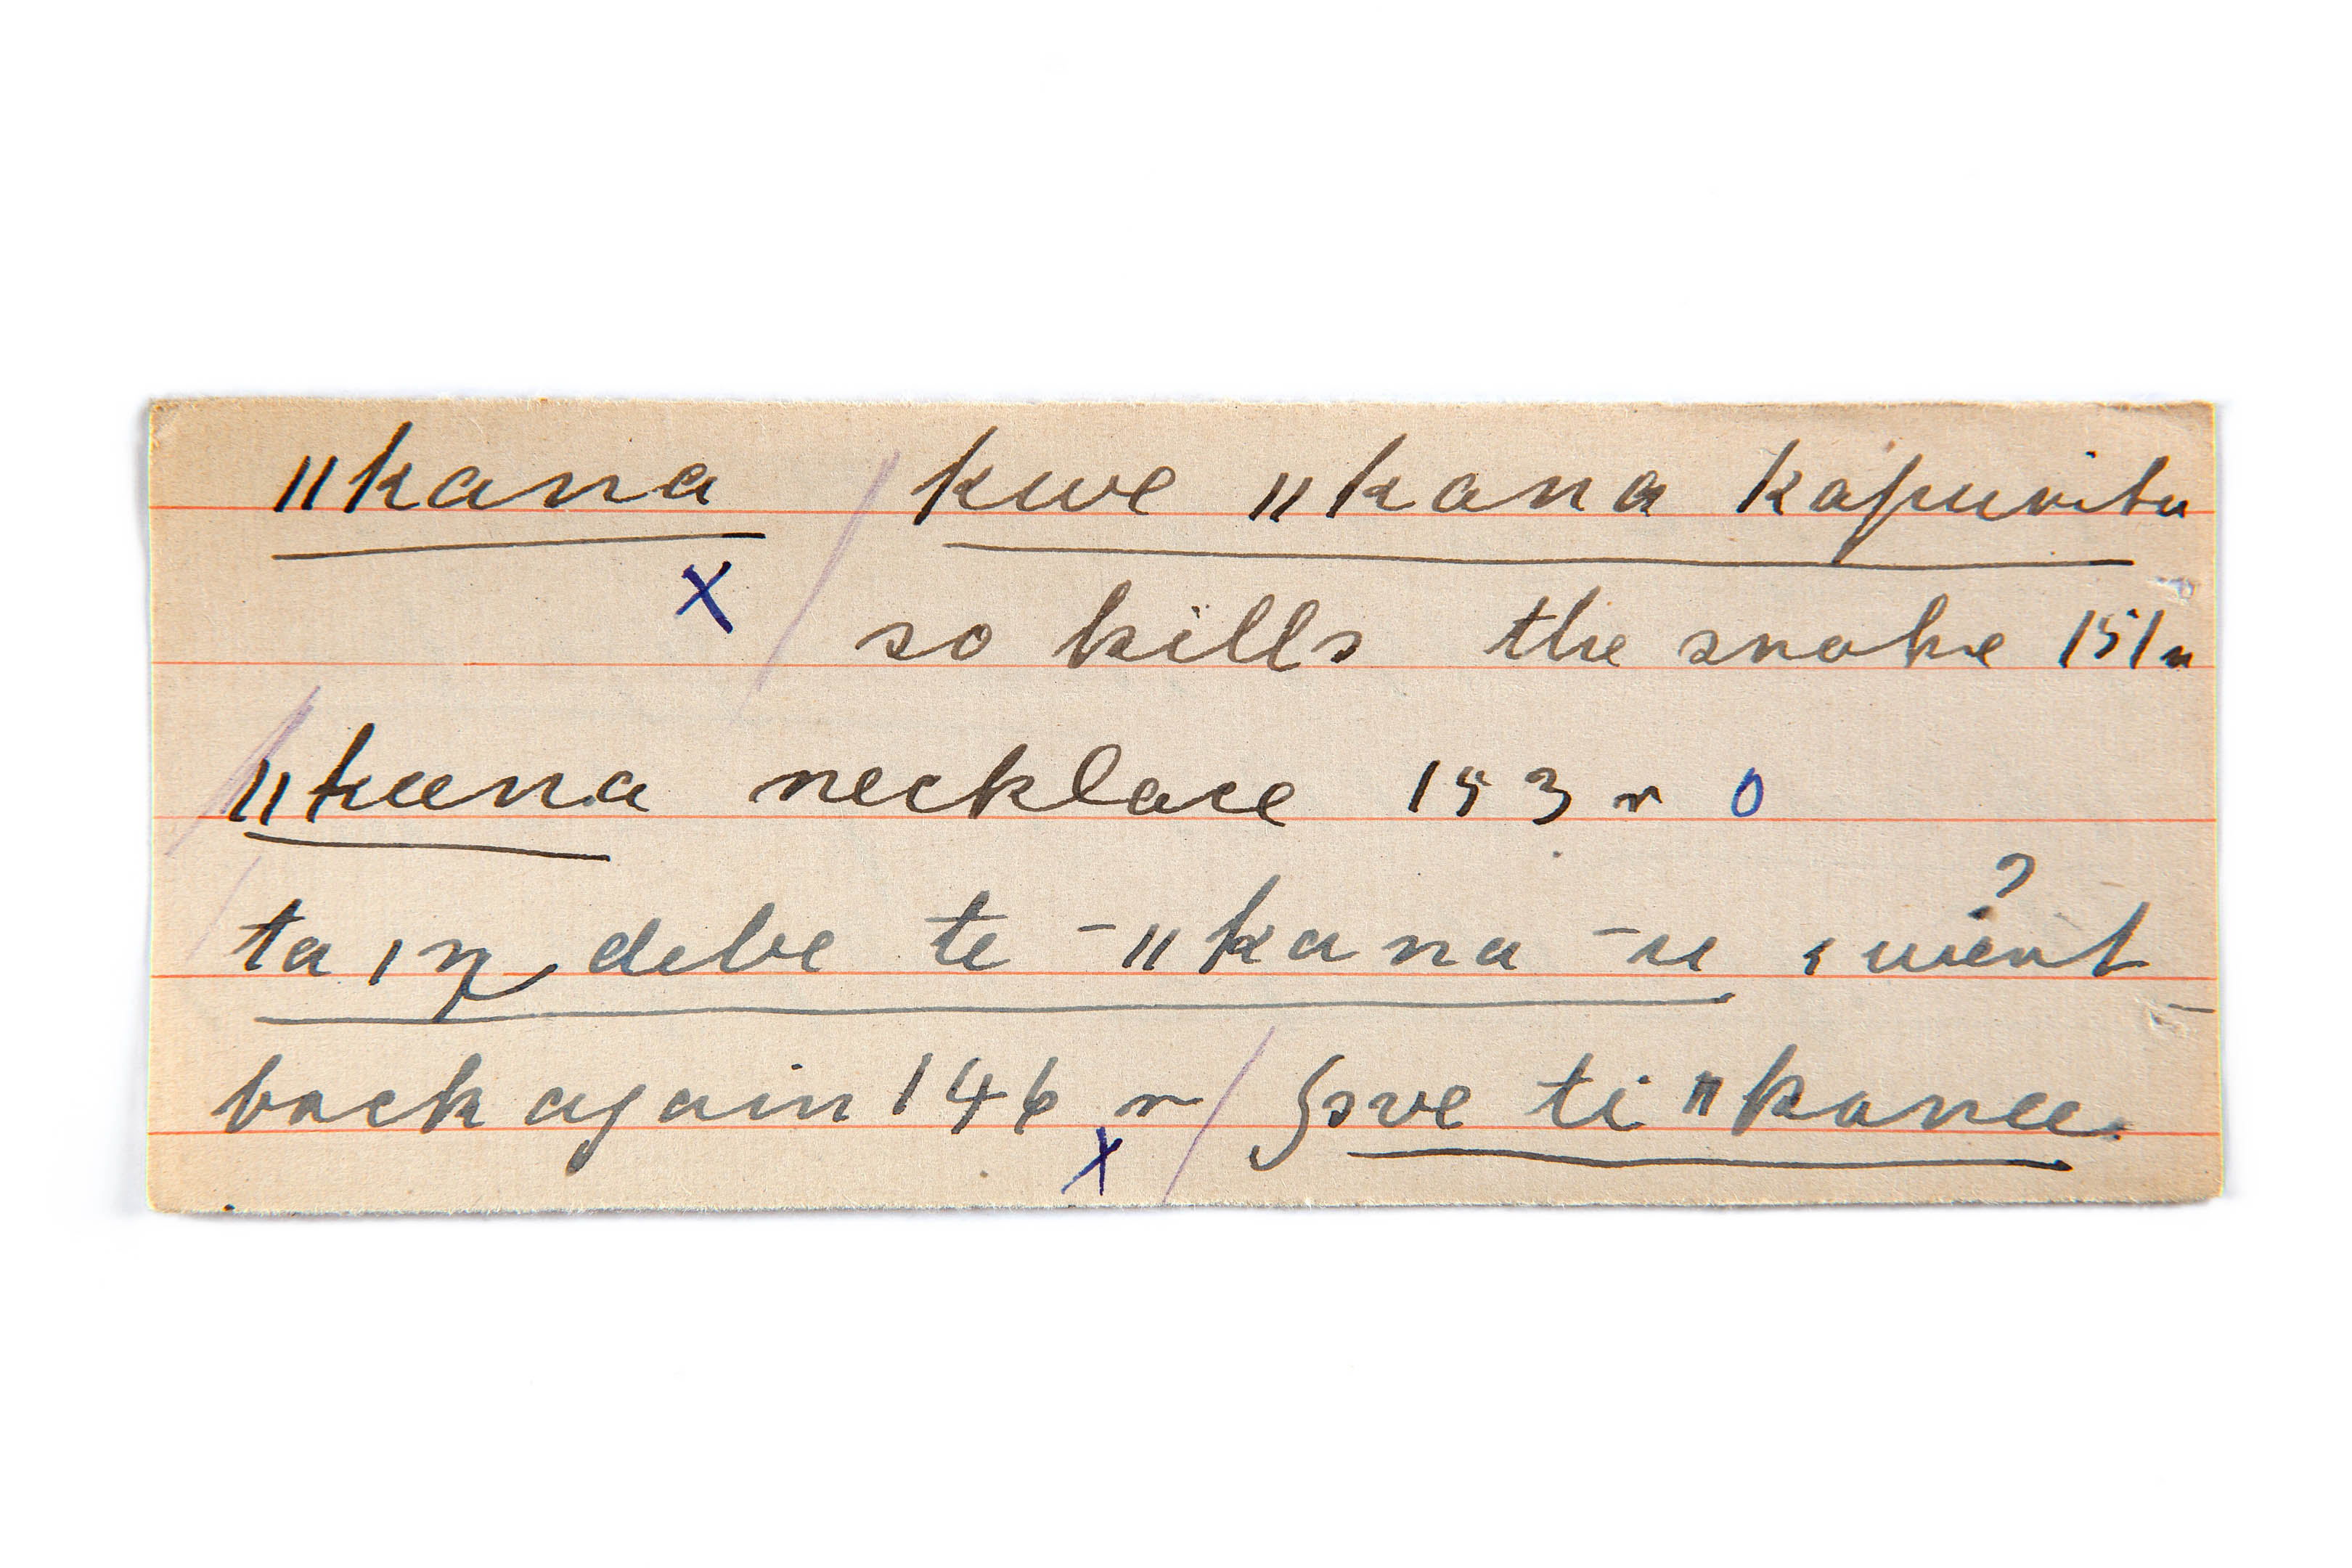 ǁkana / kwe ǁkana kapuritu
X so kills the snake 151 r
ǁkuna necklace 153 r O
?
ta ı ŋ debe te -ǁkana -u , went
back again 146 r / ʃɔve ti ǁkanee
X